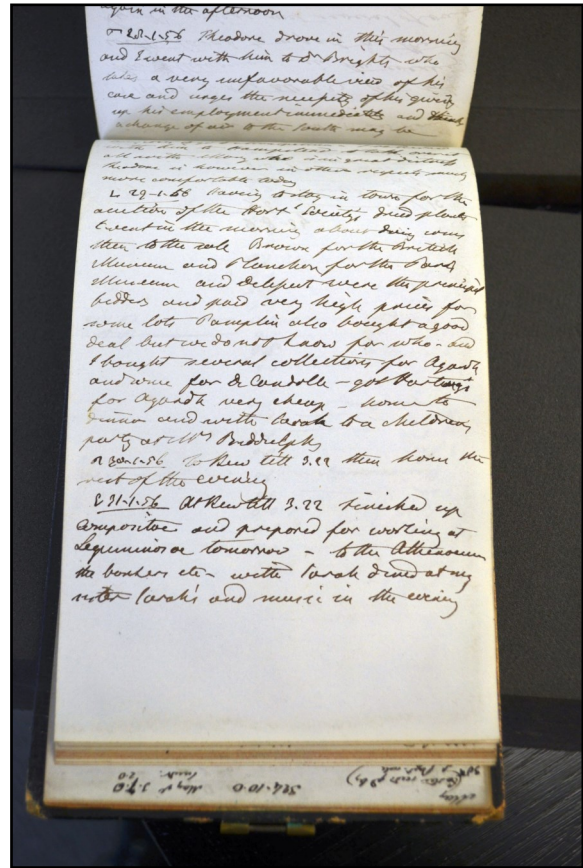 again in the afternoon
28-1-56 Theodore drove in this morning
and I went with him to Dr Brights who
takes a very unfavorable view of his
case and urges the necessity of his giving
up his employment immediately and thinks
a change of air to the South may be
with him a
all in great distress
Theodore is however in other respects
more comfortable today
L 29-1-56 Having to stay in town for the
auction of the Hortl Society's dried plants
I went in the morning about doing
then to the sale Brown for the British
Museum and Planchon for the Paris
Museum and Delessert were the principal
bidders and paid very high prices for
some lots Pamplin also bought a good
deal but we do not know for who - and
I bought several collections for Agardh
and some for DeCandolle - got Hartweg's
for Agardh very cheap - home to
dinner and with Sarah to a childrens
party at Mrs Biddulphs
30-1-56 To Kew till 3.22 then home the
rest of the evening
31-1-56 At Kew till 3.22 finished up
Compositae and prepared for working at
Leguminosae tomorrow - to the Athenaeum
the bankers etc - with Sarah dined at my
sister Sarah's and music in the evening